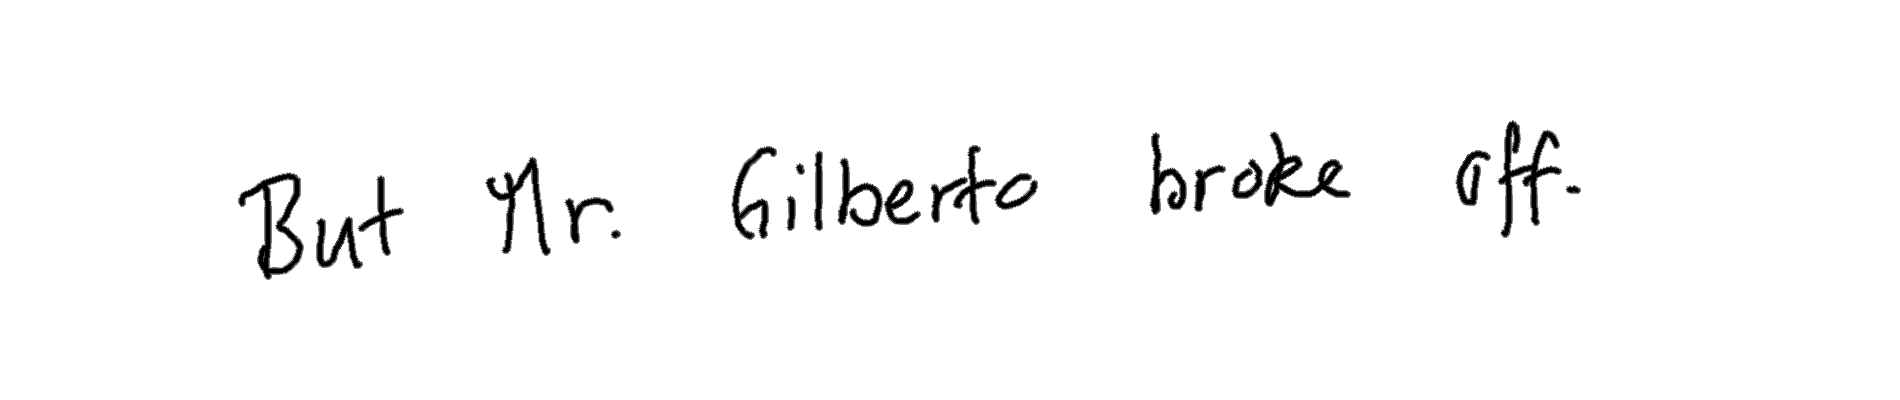 But Mr. Gilberto broke off.